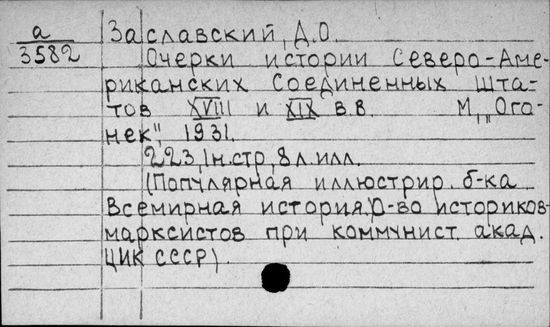 а Заславский, Д.О.
3582 Очерки истории Северо-Аме-
риканских Соединенных Шта-
тов XVIII и XIX в.в. М., „Ого-
нек", 1931.
223,1н.стр,8л.илл.
(Популярная иллюстрир. б-ка
Всемирная история. О-во историков-
марксистов при коммунист. акад.
ЦИК СССР).